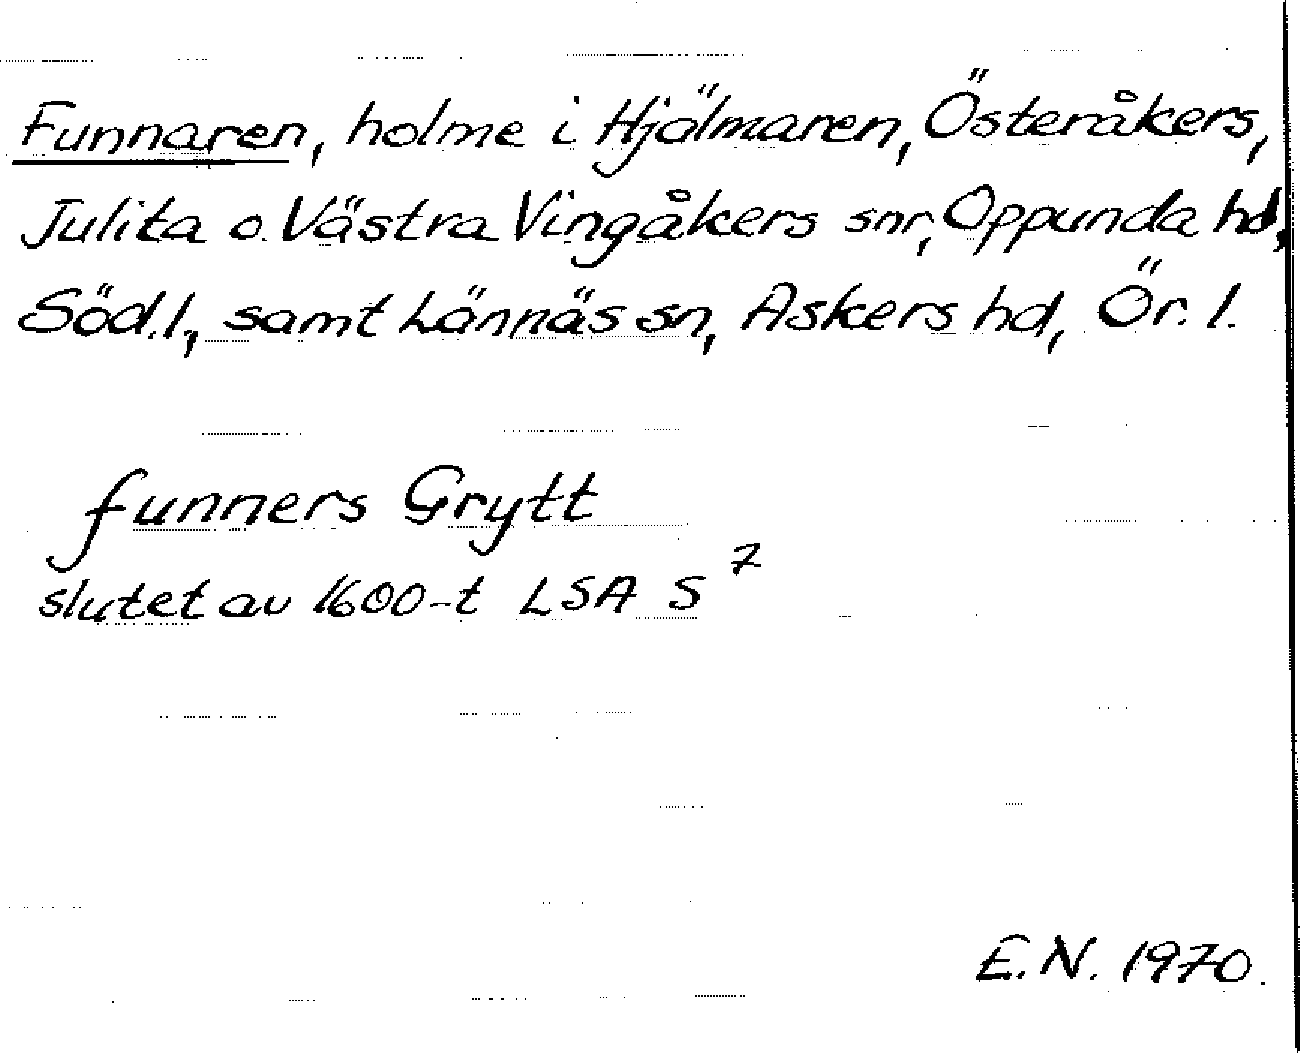 Funnaren, holme i Hjälmaren, Österåkers,
Julita o. Västra Vingåkers snr, Oppunda hd,
Söd. l., samt Lännäs sn, Askers hd, Ör. l.
funners Grytt
slutet av 1600-t LSA S 7
E.N. 1970.